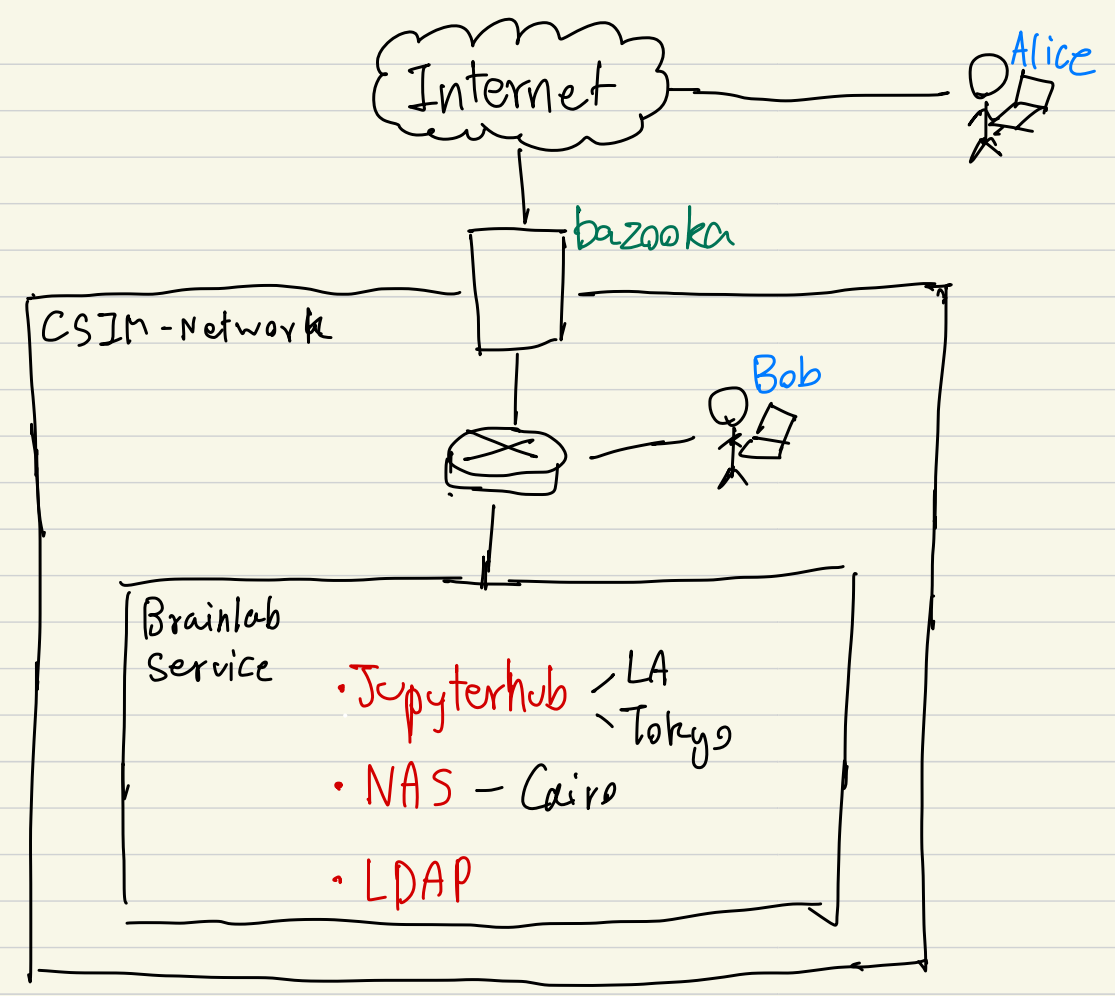 Internet
Alice
bazooka
CSIM-Network
Bob
Brainlab
Service
• Jupyterhub
LA
Tokyo
• NAS - Cairo
• LDAP